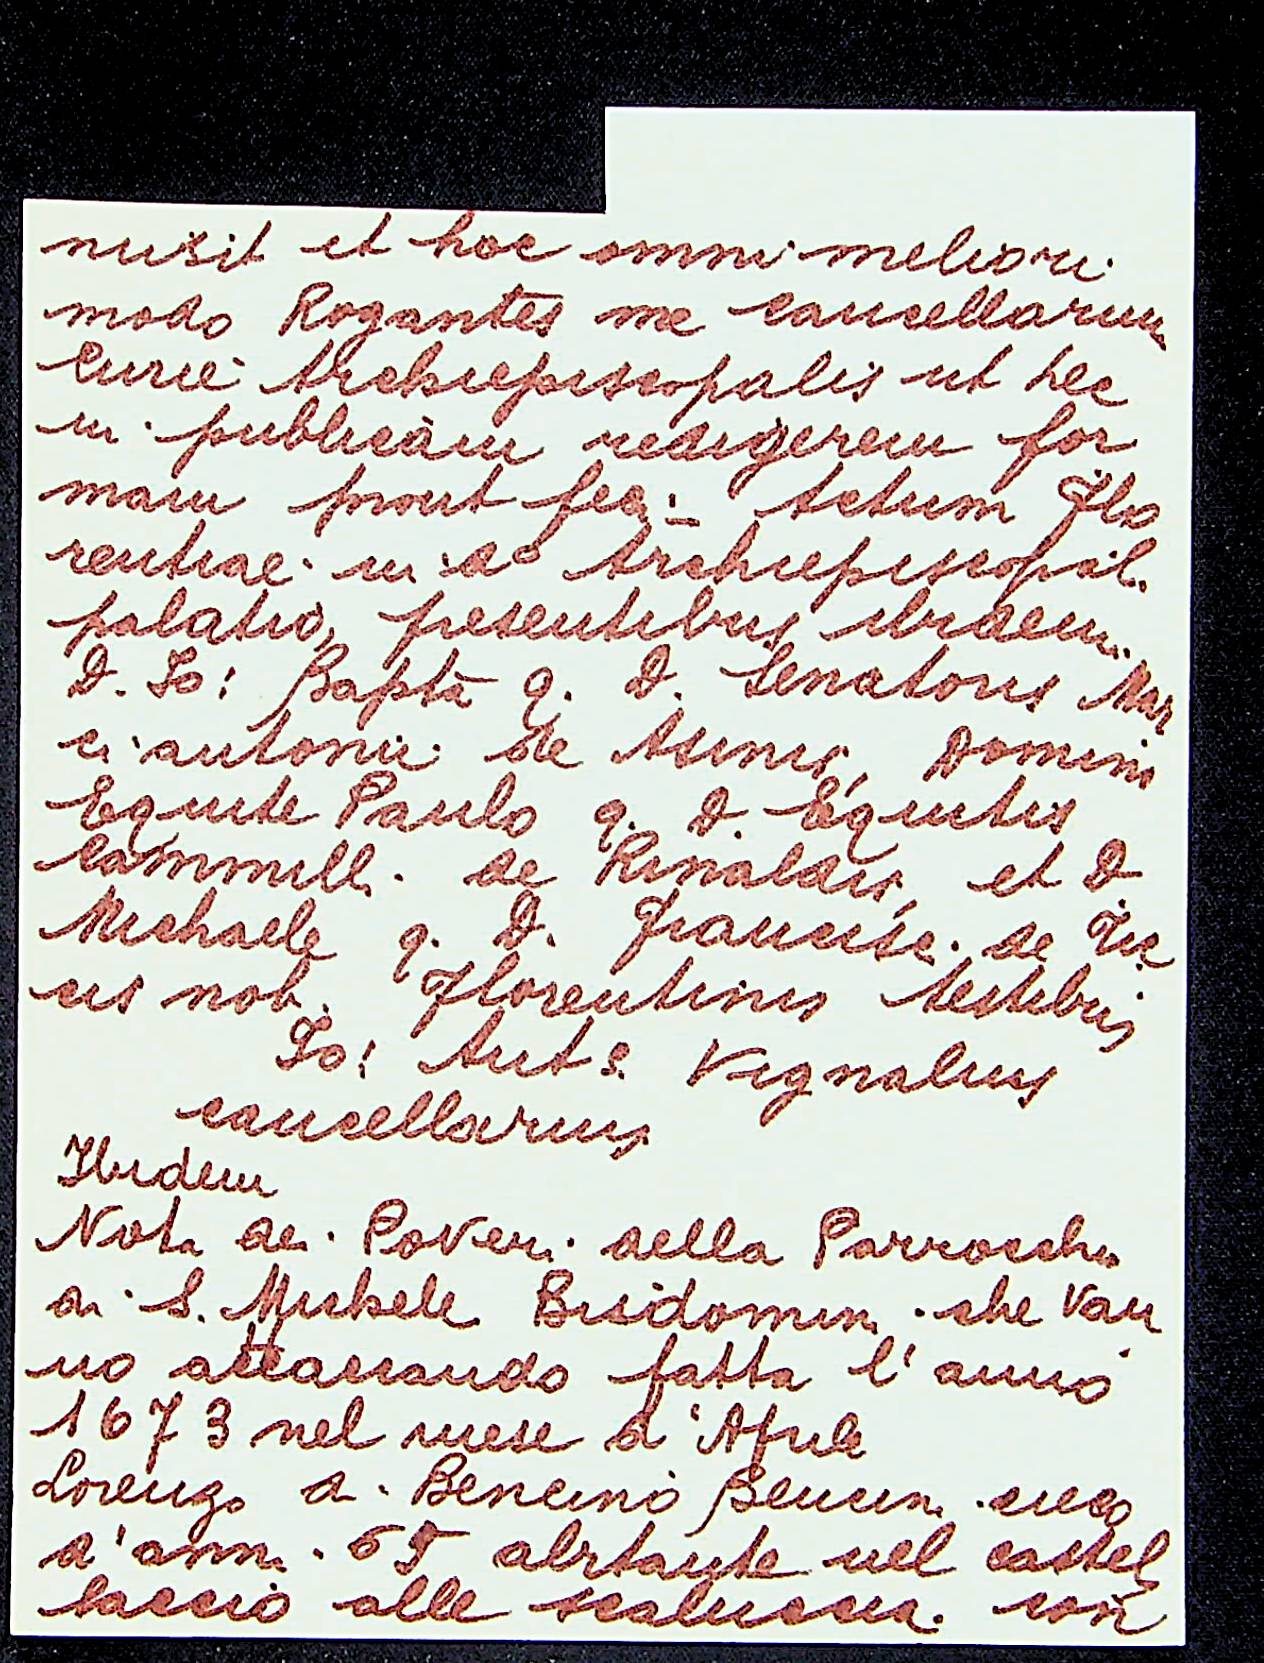 nusit et hoc omni meliori
modo Rogantes me cancellarium
Curie Archiepiscopalis ut hec
in publicam redigerem for
mam prout feci: Actum Flo
rentiae in do Archiepiscopali
palatio, presentibus ibidem
D. Io: Bapta q. D. Senatoris Mar
ci antonii de Asinis, Domino
Equite Paulo q. D. Equitis
Cammilli de Rinaldis, et D.
Michaele q. D. Francisci de Tic
cis nob. Florentinis testibus
Io: Ant.s Vignalius
cancellarius
Ibidem
Nota dei Poveri della Parrocchia
di S. Michele Bisdomini che Van
no accattando fatta l'anno
1673 nel mese d'Aprile
Lorenzo di Bencino Bencini cieco
d'anni 65 abitante nel castel
laccio alle con